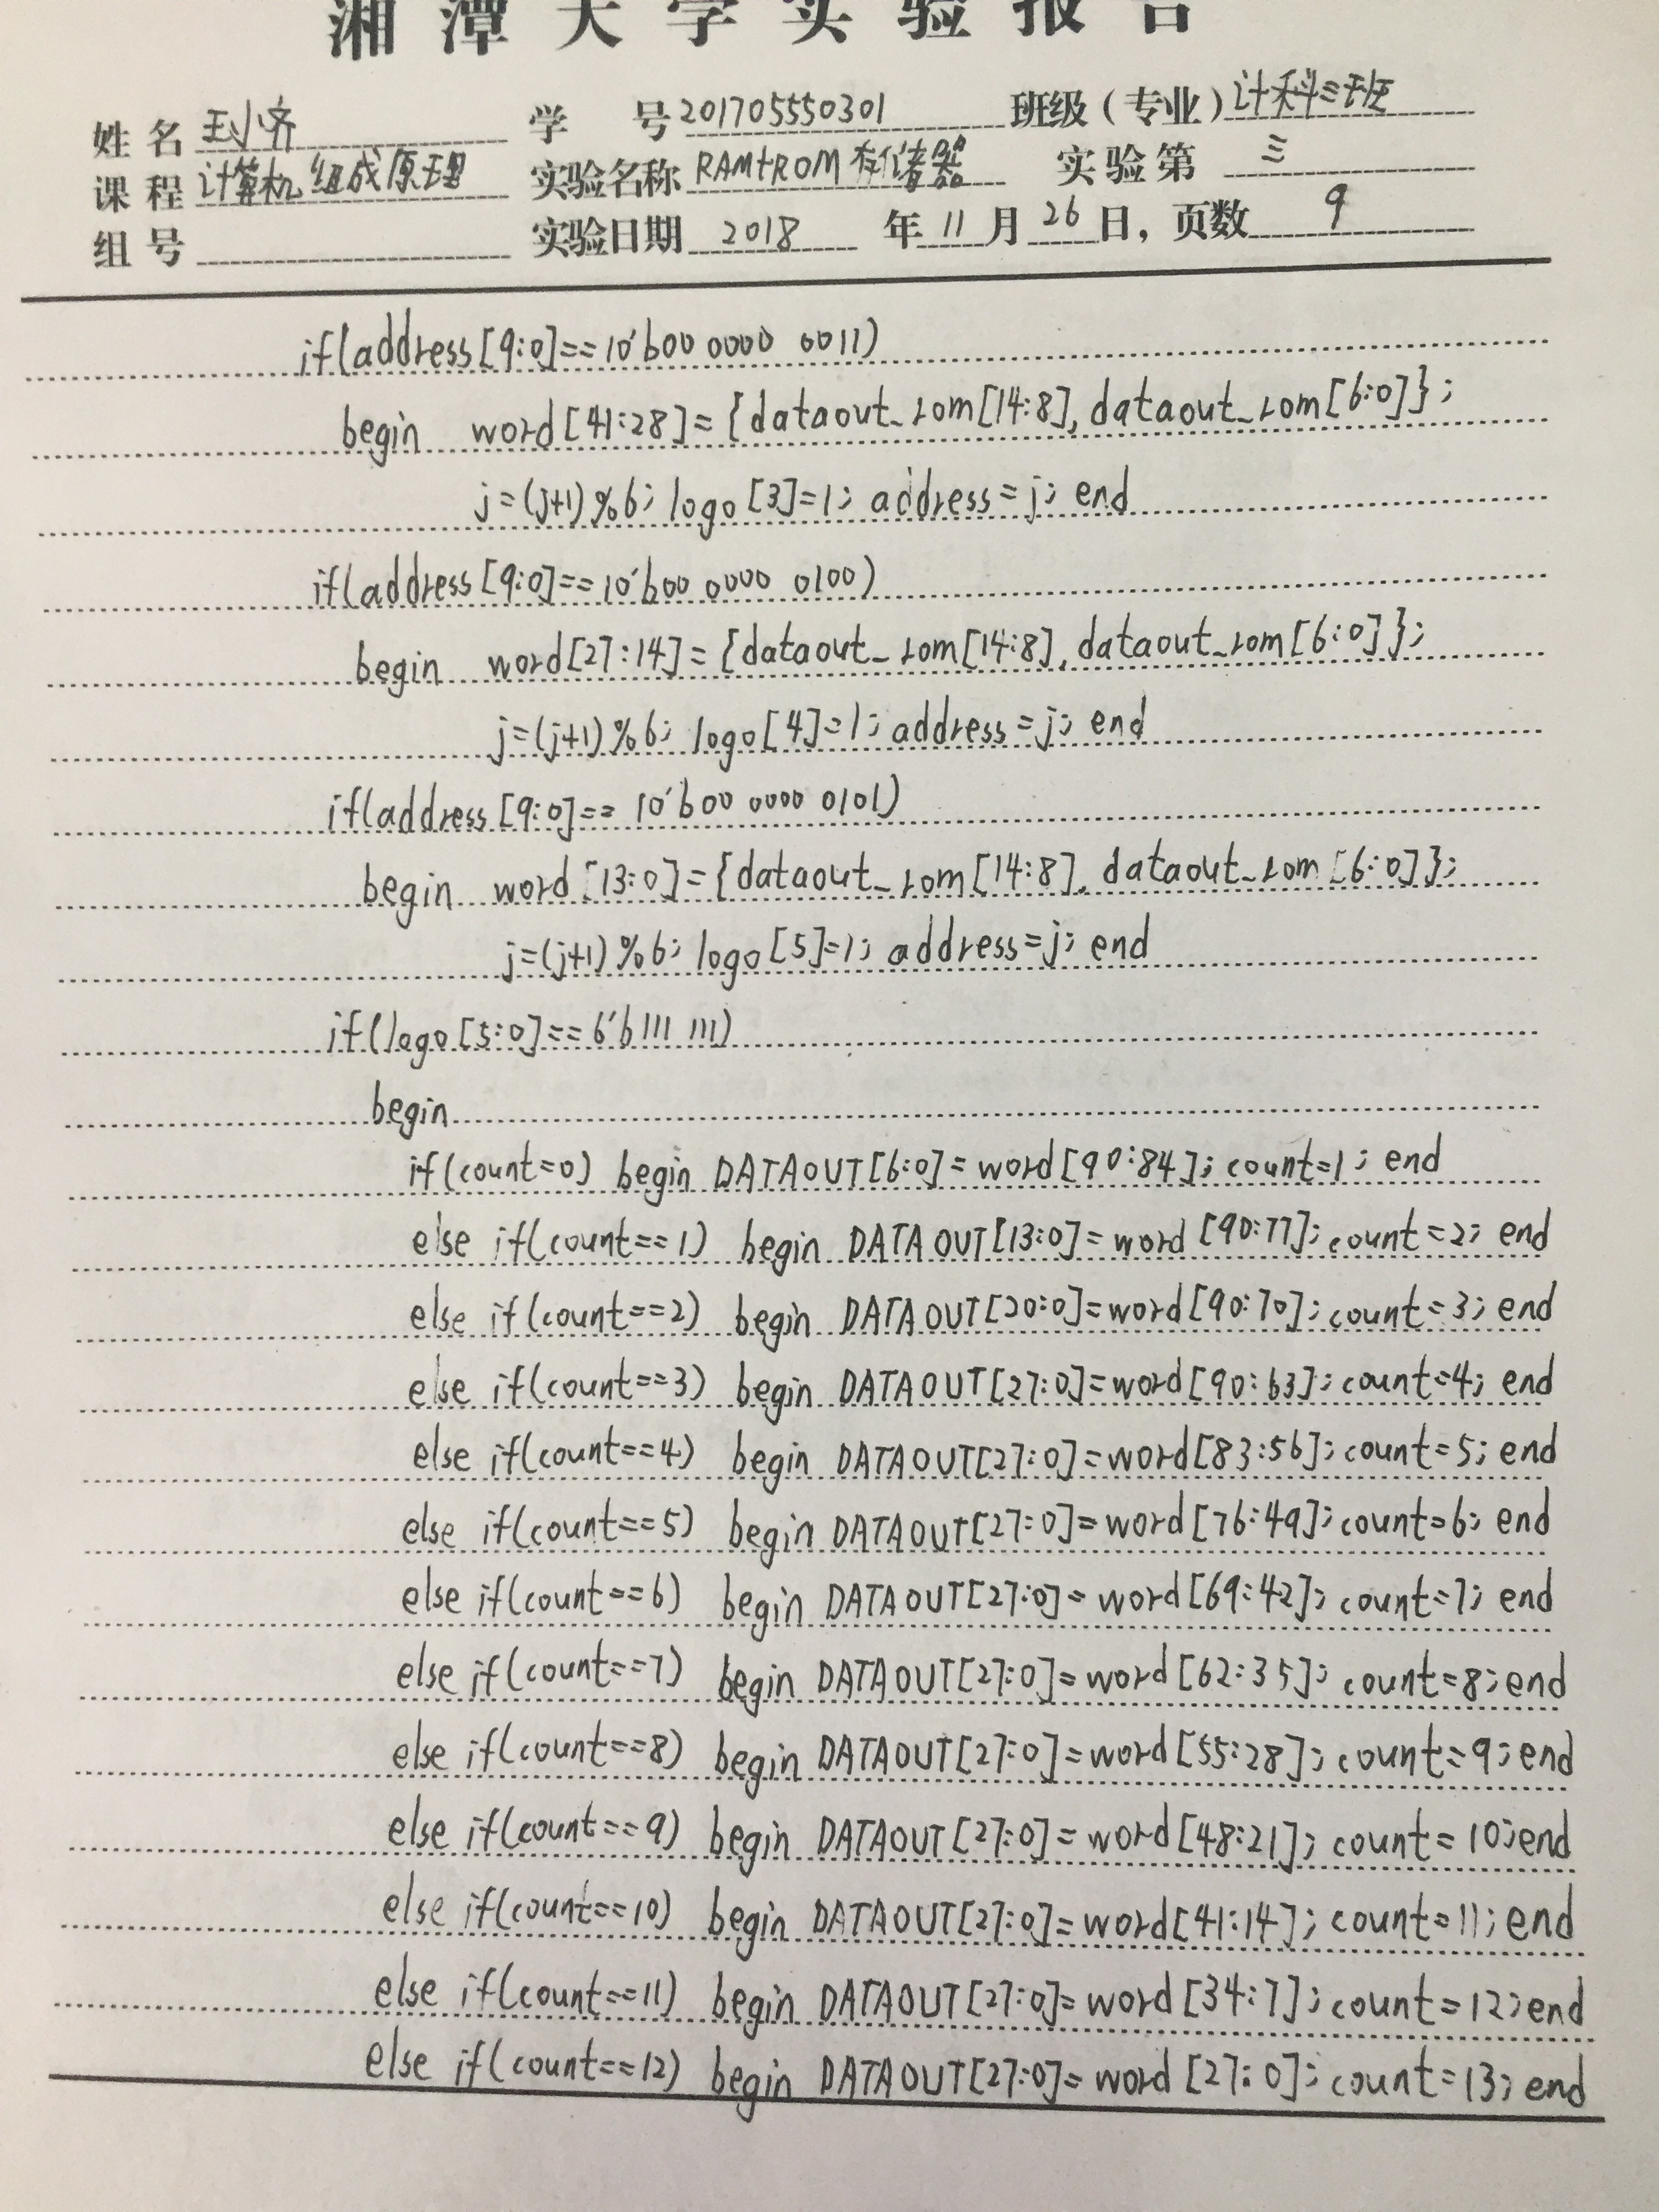 湘潭大学实验报告
姓名 王小齐 学号 201705550301 班级（专业） 计科三班
课程 计算机组成原理 实验名称 RAM+ROM存储器 实验第 三
组号 实验日期 2018 年 11 月 26 日，页数 9
if(address[9:0]==10'b00 0000 0011)
begin word[41:28]={dataout_rom[14:8],dataout_rom[6:0]};
j=(j+1)%6; logo[3]=1; address=j; end
if(address[9:0]==10'b00 0000 0100)
begin word[27:14]={dataout_rom[14:8],dataout_rom[6:0]};
j=(j+1)%6; logo[4]=1; address=j; end
if(address[9:0]==10'b00 0000 0101)
begin word[13:0]={dataout_rom[14:8],dataout_rom[6:0]};
j=(j+1)%6; logo[5]=1; address=j; end
if(logo[5:0]==6'b111 111)
begin
if(count=0) begin DATAOUT[6:0]=word[90:84]; count=1; end
else if(count==1) begin DATAOUT[13:0]=word[90:77]; count=2; end
else if(count==2) begin DATAOUT[20:0]=word[90:70]; count=3; end
else if(count==3) begin DATAOUT[27:0]=word[90:63]; count=4; end
else if(count==4) begin DATAOUT[27:0]=word[83:56]; count=5; end
else if(count==5) begin DATAOUT[27:0]=word[76:49]; count=6; end
else if(count==6) begin DATAOUT[27:0]=word[69:42]; count=7; end
else if(count==7) begin DATAOUT[27:0]=word[62:35]; count=8; end
else if(count==8) begin DATAOUT[27:0]=word[55:28]; count=9; end
else if(count==9) begin DATAOUT[27:0]=word[48:21]; count=10; end
else if(count==10) begin DATAOUT[27:0]=word[41:14]; count=11; end
else if(count==11) begin DATAOUT[27:0]=word[34:7]; count=12; end
else if(count==12) begin DATAOUT[27:0]=word[27:0]; count=13; end